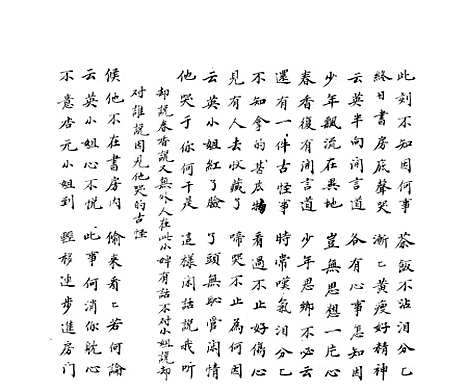 此刻不知因何事　茶飯不沾泪分〻
終日書房底聲哭　漸〻黄瘦好精神
云英半向開言道　各有心事怎知因
少年飄流在異地　豈無思想一片心
春香復有開言道　少年思鄉不必云
還有一件古怪事　時常嘆氣泪分〻
不知拿的甚庅物　看過不止好傷心
見有人去收藏了　啼哭不止為何因
云英小姐紅了臉　了頭無恥管闲情
他哭于你何干是　這樣闲話說我听
却說春香說又無外人在此小婢有話不对小姐說却
对誰說因見他哭的古怪
候他不在書房内　偷来看〻若何論
云英小姐心不悦　此事何消你耽心
不意杏元小姐到　輕移連步進房門